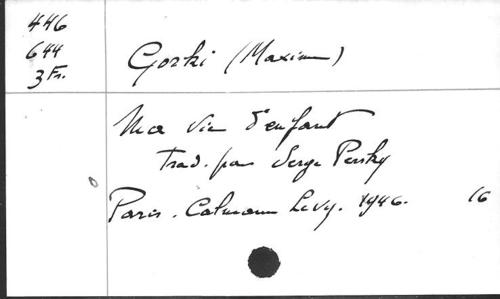 446
644
3 Fr.
Gorki (Maxime)
Ma vie d'enfant
trad. par Serge Persky
Paris. Calmann Levy. 1946. 16